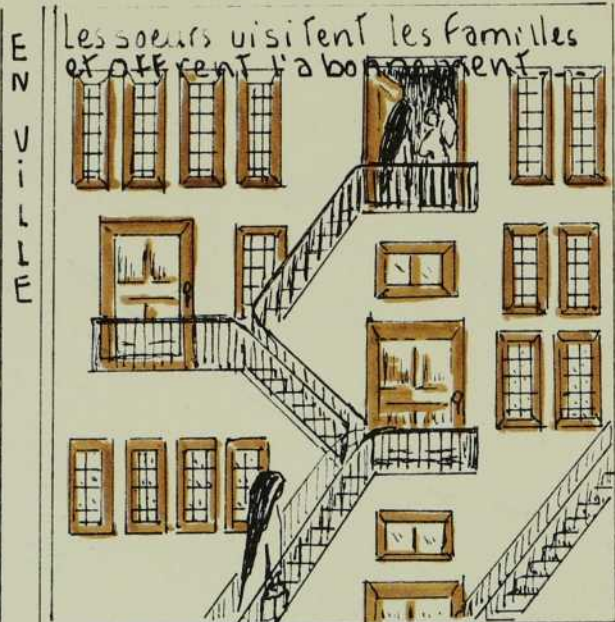 EN ViLLE
Les soeurs visitent les familles
et offrent l'abonnement